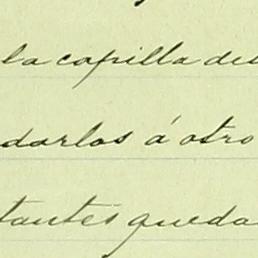 la capilla de
darlos á otro
tantes queda